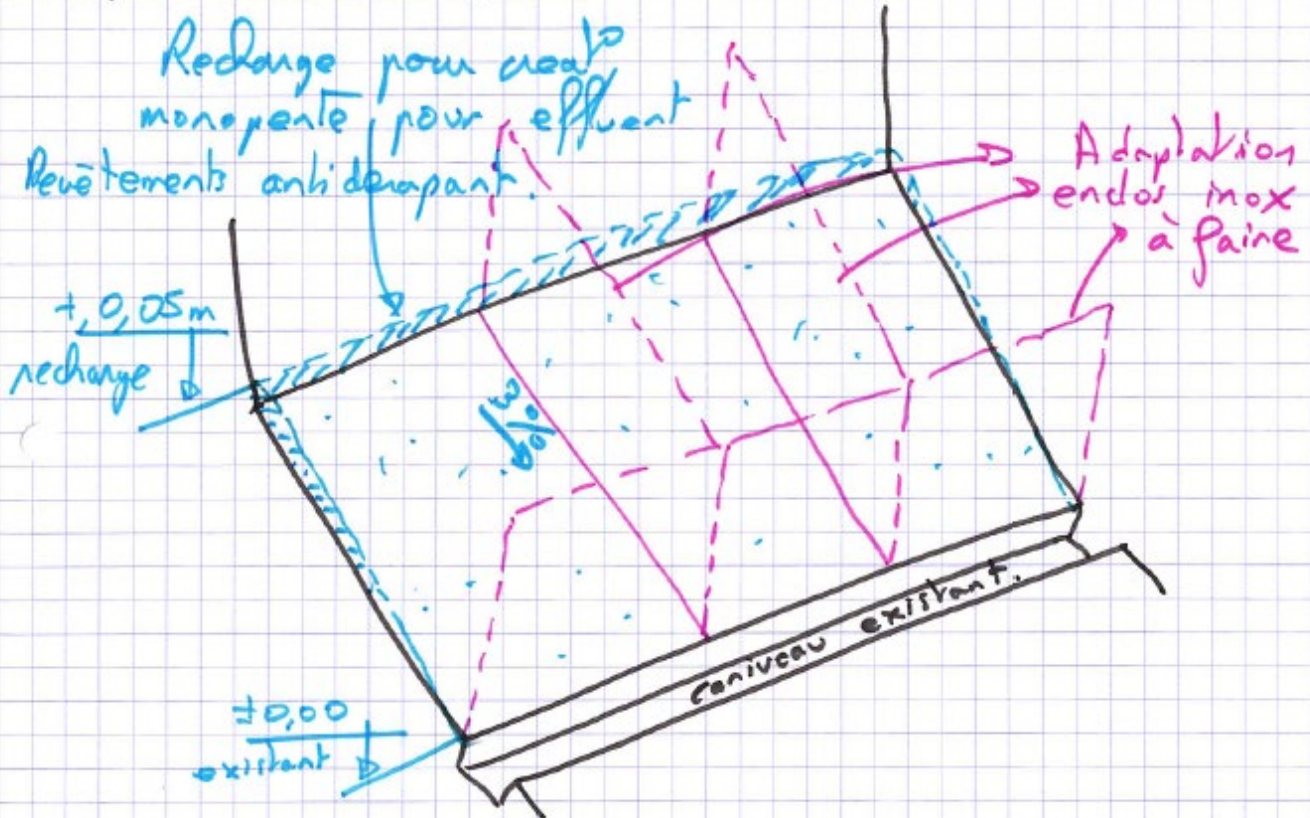 Recharge pour creat°
monopente pour effluent
Revêtements antidérapant.
Adaptation
enclos inox
à faire
+0,05m
recharge
3%
caniveau existant.
±0,00
existant